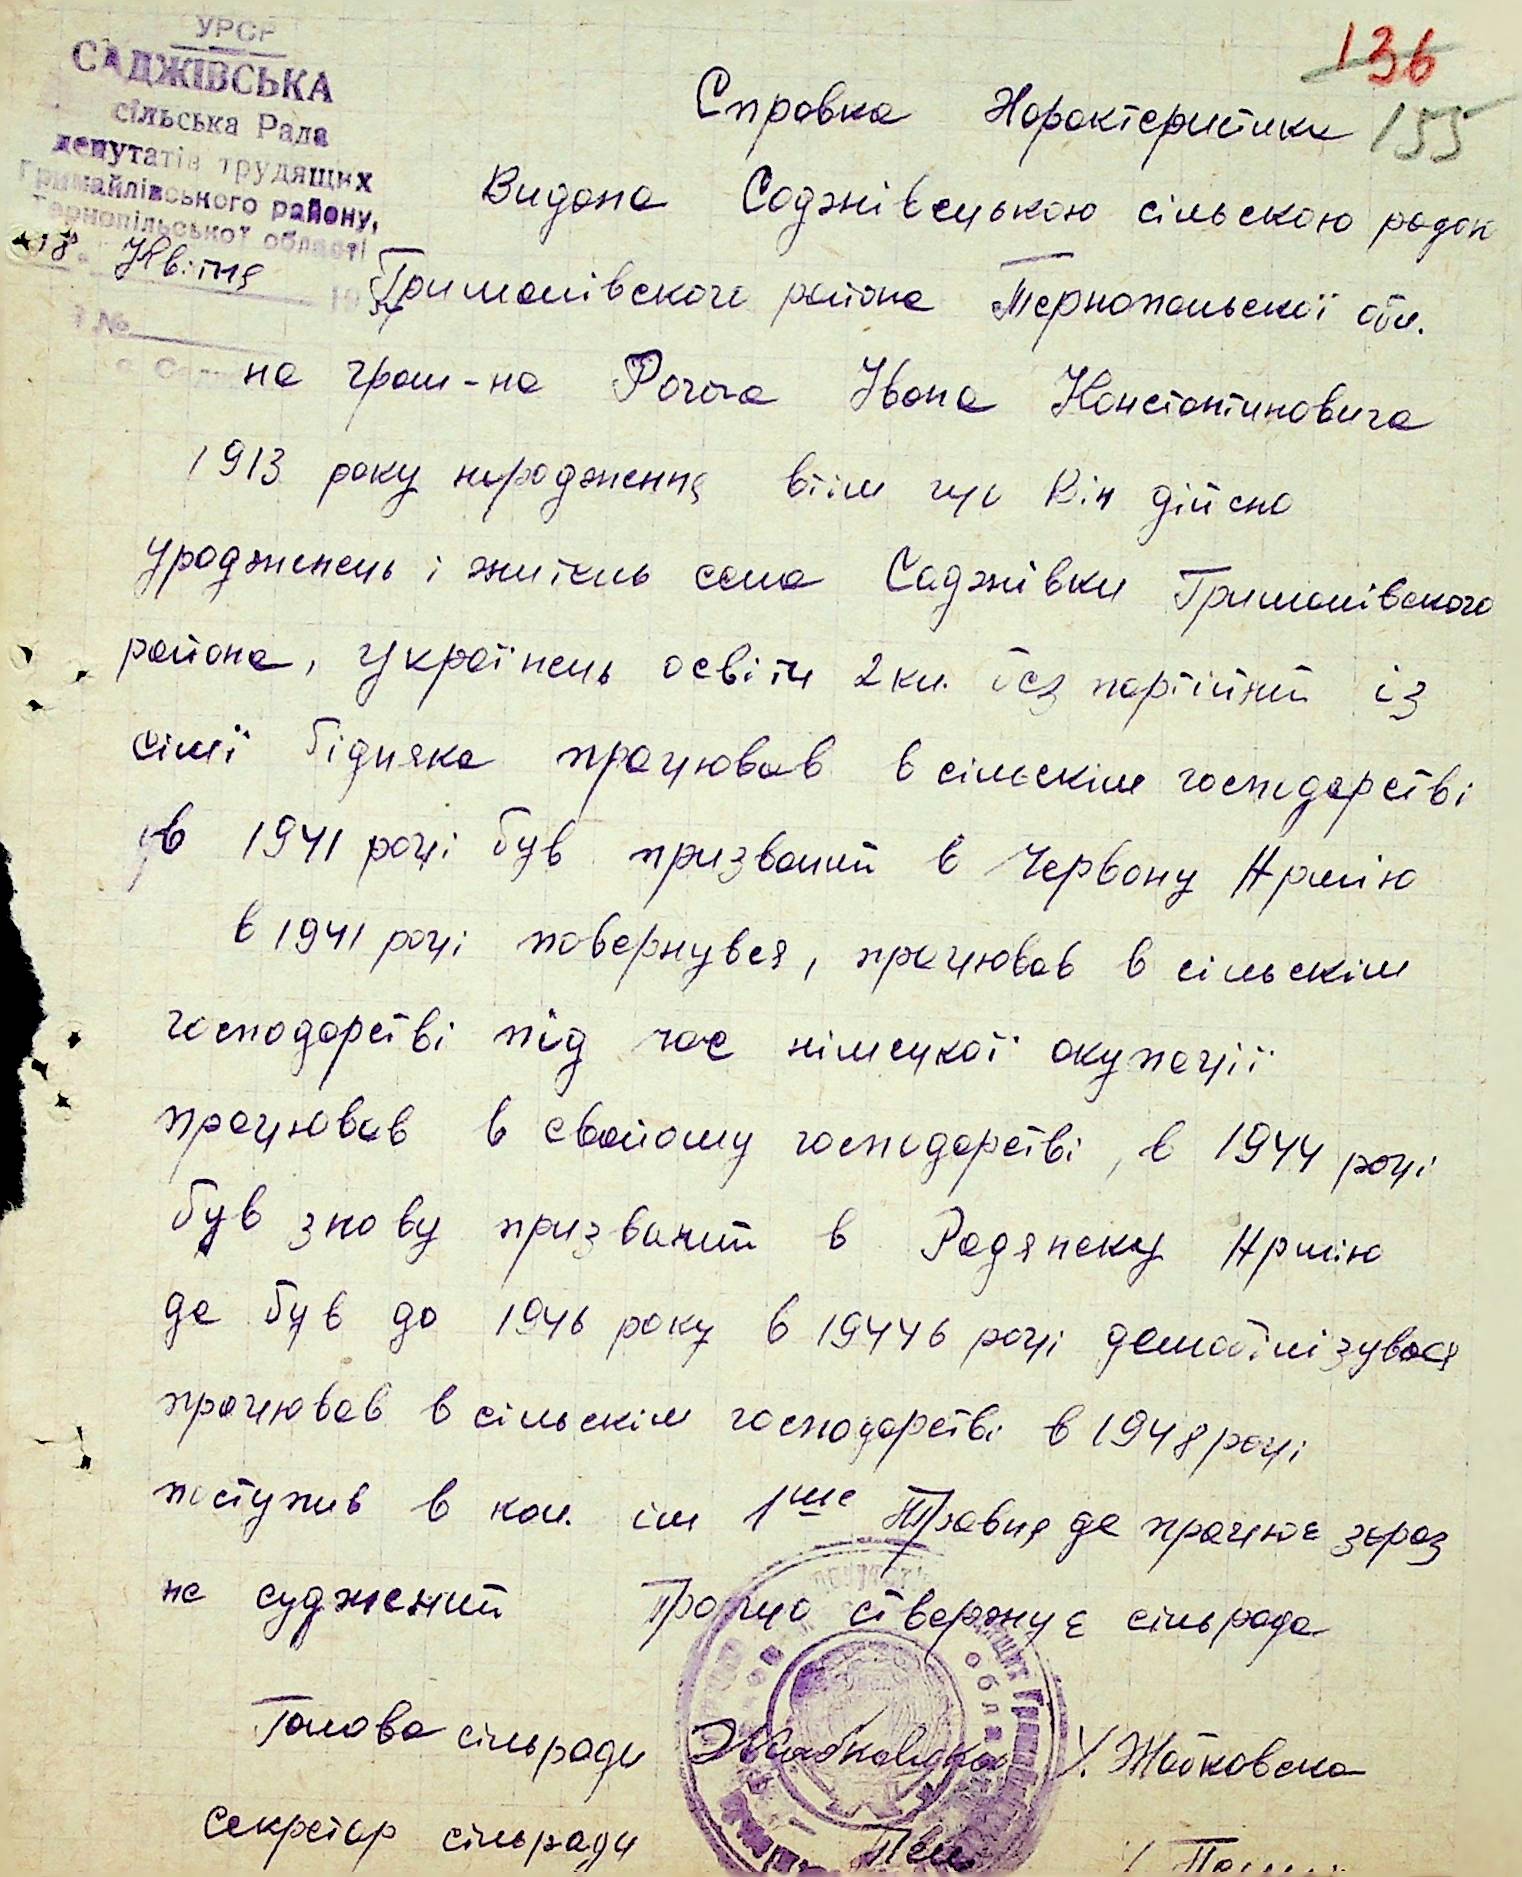 УРСР
САДЖІВСЬКА
сільська Рада
депутатів трудящих
Гримайлівського району,
Тернопільської області
136
155
Справка Характеристика
Видана Саджівецькою сільскою радою
18 Квітня 19
Грималівского района Тернопольскої обл.
№
с. Садж
на грам-на Рогача Івана Константиновича
1913 року народження втім що він дійсно
уродженець і житель села Саджівки Грималівского
района, українець освіти 2 кл. безпартійний із
сімї бідняка працював в сільскім господарстві
ув 1941 році був призваний в Червону Армію
в 1941 році повернувся, працював в сільскім
господарстві під час німецкої окупації
працював в свойому господарстві, в 1944 році
був знову призваний в Радянску Армію
де був до 1946 року в 19446 році демобілізувався
працював в сільскім господарстві в 1948 році
поступив в кол. ім 1ше Травня де працює зараз
не суджений Про що ствержує сільрада
Голова сільради У. Жабковска
Секретар сільради